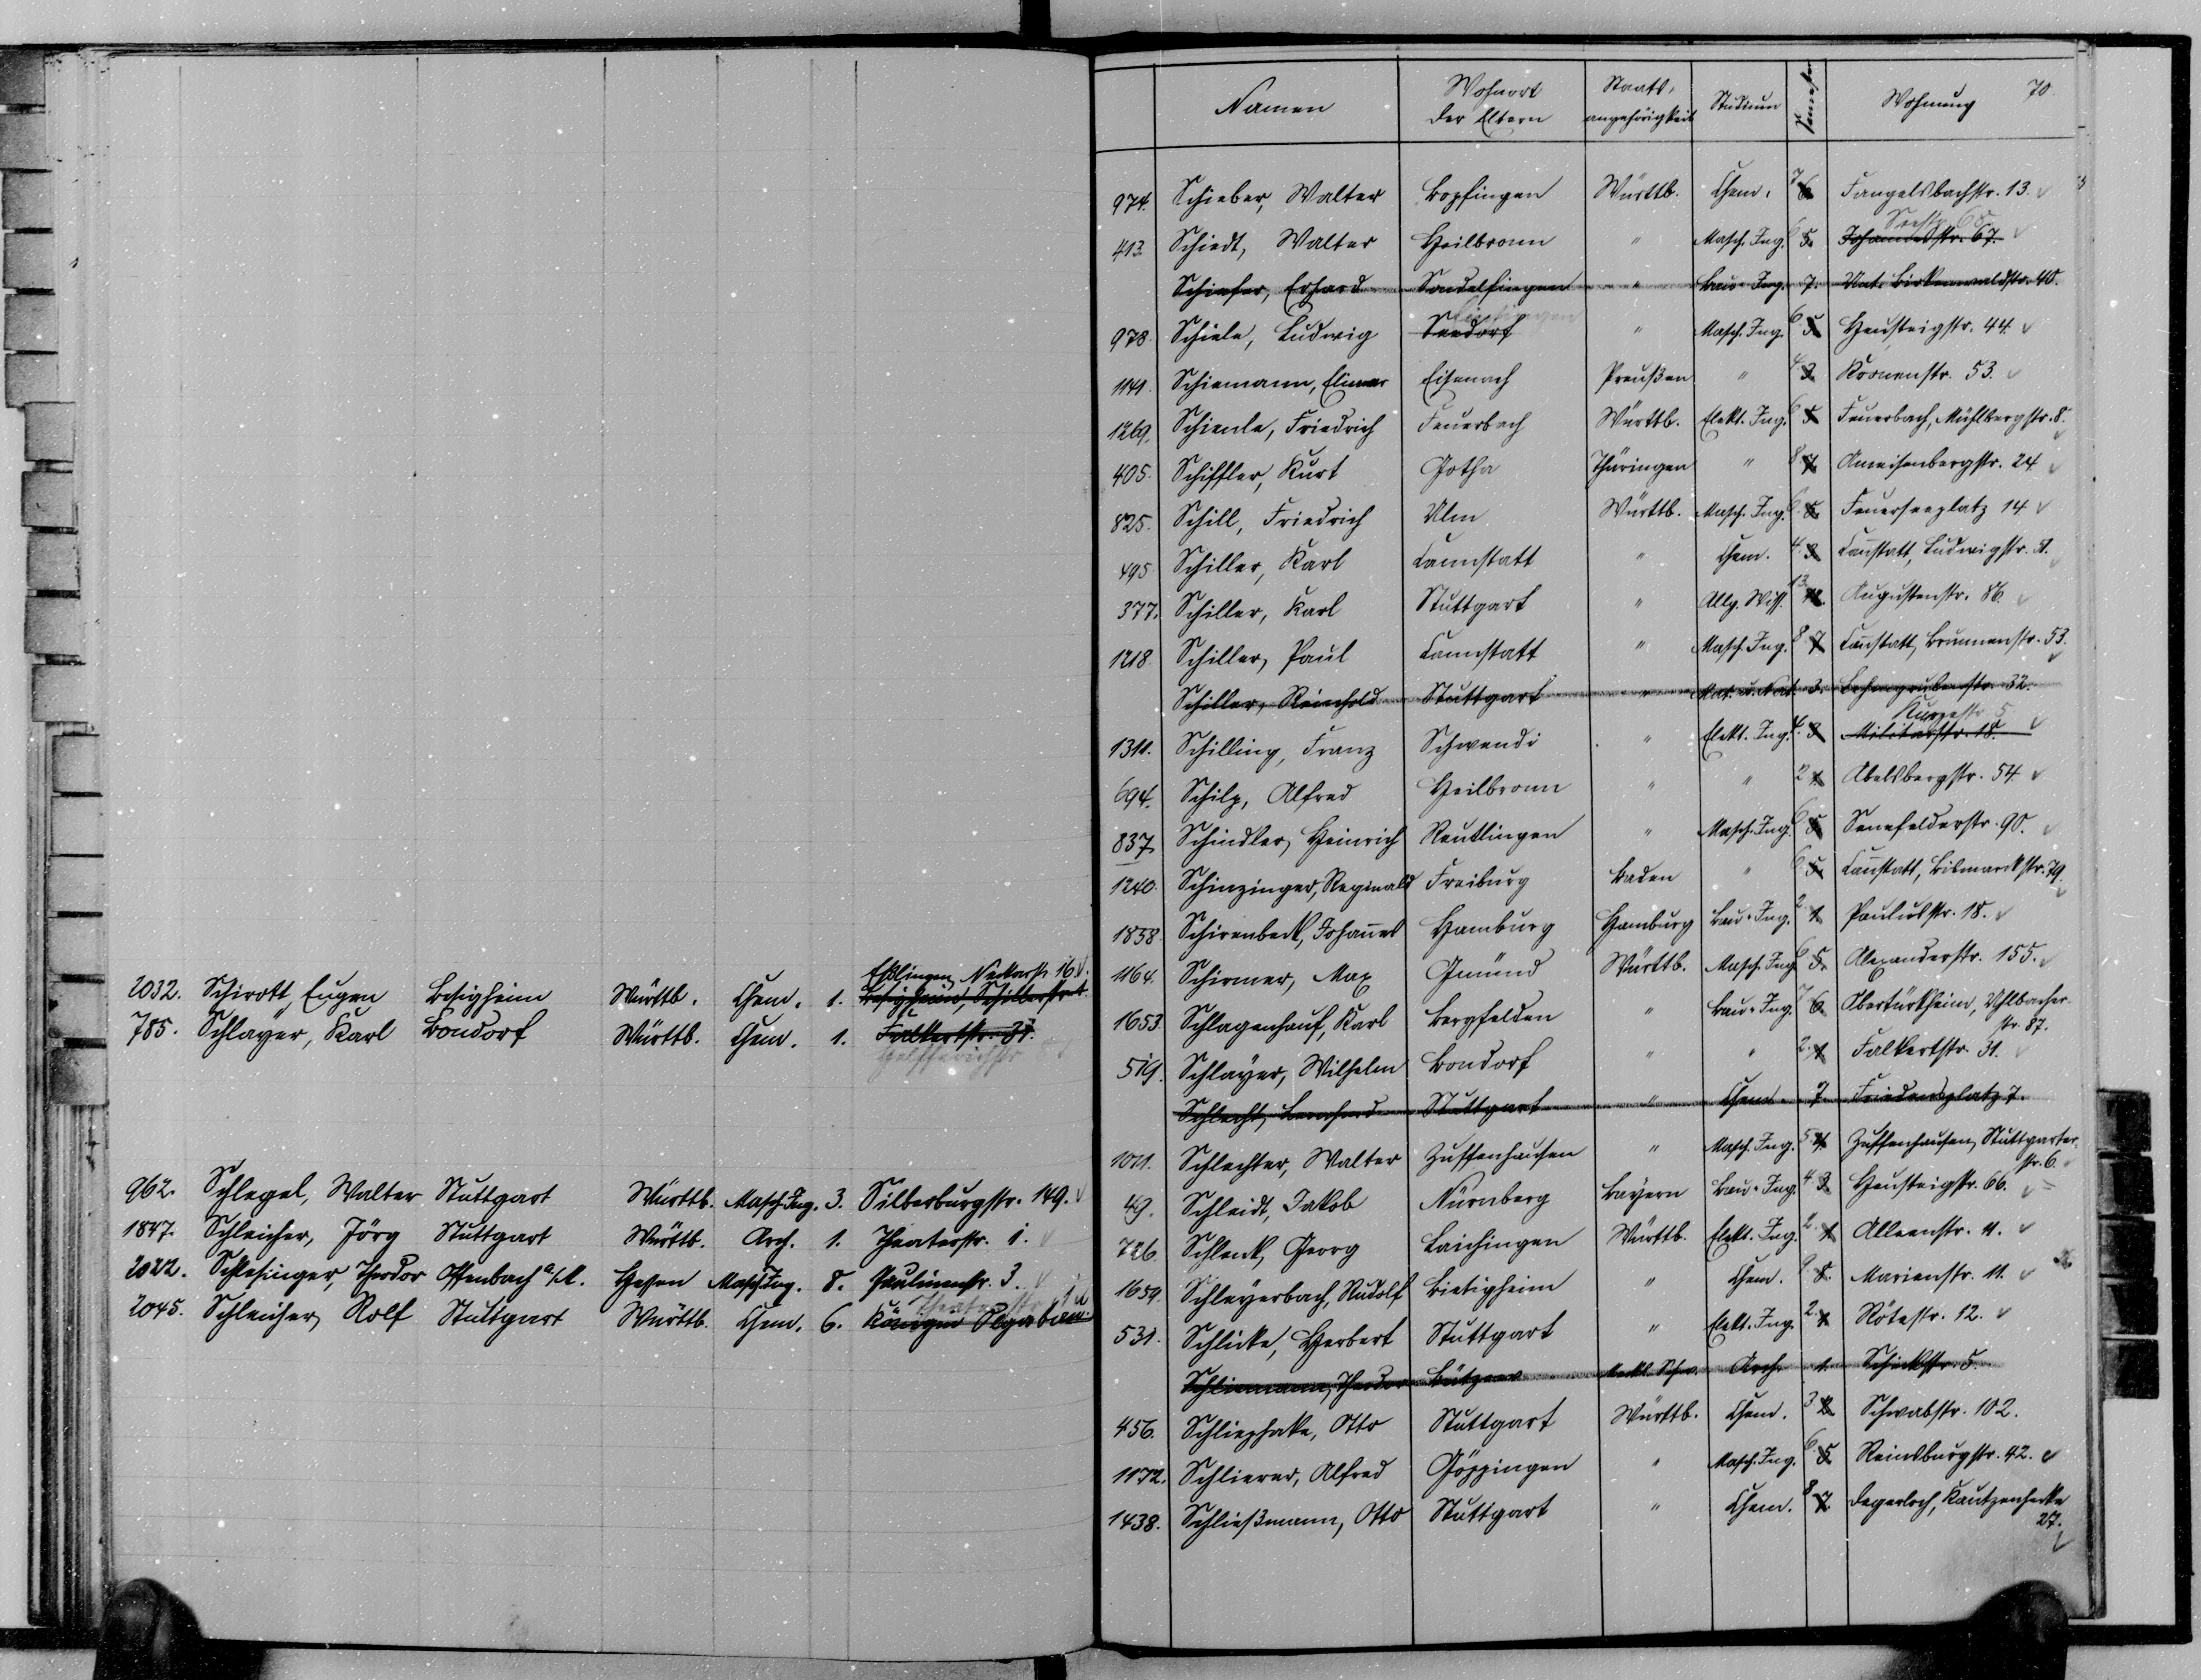 2032. Schirott, Eugen Besigheim Württb. Chem. 1. Eßlingen, Neckarstr. 16. Besigheim, Schillerstr.
785. Schlayer, Karl Bondorf Württb. Chem. 1. Falkertstr. 31. Helfferichstr.
962. Schlegel, Walter Stuttgart Württb. Masch.Ing. 3. Silberburgstr. 149.
1847. Schleicher, Jörg Stuttgart Württb. Arch. 1. Theaterstr. 1.
2022. Schlesinger, Theodor Offenbach a/M. Hessen Masch.Ing. 8. Paulinenstr. 3.
2045. Schleicher, Rolf Stuttgart Württb. Chem. 6. Theaterstr. Königin Olgabau
Namen Wohnort der Eltern Staats-angehörigkeit Studium Semester Wohnung 70
974. Schieber, Walter Bopfingen Württb. Chem. 7 6. Fangelsbachstr. 13.
413. Schiedt, Walter Heilbronn " Masch. Ing. 6 5. Seestr. 68 Johannesstr. 67.
Schiefer, Erhard Sondelfingen " Bau-Ing. 7. Unt. Birkenwaldstr. 40.
978. Schiele, Ludwig Seedorf " Masch. Ing. 6 5. Heusteigstr. 44.
1141. Schiemann, Elimar Eisenach Preußen " 4. 3. Kornenstr. 53.
1269. Schienle, Friedrich Feuerbach Württb. Elekt. Ing. 6 5. Feuerbach, Mühlbergstr. 8.
405. Schiffler, Kurt Gotha Thüringen " 8 7. Ameisenbergstr. 24
825. Schill, Friedrich Ulm Württb. Masch. Ing. 6. 5. Feuerseeplatz 14
495. Schiller, Karl Cannstatt " Chem. 4. 3. Can̄statt, Ludwigstr.
377. Schiller, Karl Stuttgart " Allg. Wiss. 13. 12. Augustenstr. 86.
1218. Schiller, Paul Cannstatt " Masch. Ing. 8 7. Can̄statt, Brunnenstr. 53.
Schiller, Reinhold Stuttgart " Mat. u. Nat. 3. Lehmgrubenstr. 32.
1311. Schilling, Franz Schwendi " Elekt. Ing. 4. 3. Kurzestr. 5 Militärstr. 18.
694. Schilp, Alfred Heilbronn " " 2 1. Abelsbergstr. 54.
837. Schindler, Heinrich Reutlingen " Masch. Ing. 6 5. Senefelderstr. 90.
1240. Schinzinger, Reginald Freiburg Baden " 6 5. Can̄statt, Bismarckstr. 79.
1858. Schirenbeck, Johan̄es Hamburg Hamburg Bau-Ing. 2 1. Paulusstr. 18.
1164. Schirmer, Max Gmünd Württb. Masch. Ing. 6 5. Alexanderstr. 155.
1653. Schlagenhauf, Karl Bergfelden " Bau-Ing. 7 6. Obertürkheim, Uhlbacher-
str. 87.
519. Schlayer, Wilhelm Bondorf " " 2. 1. Falkertstr. 31.
Schlecht, Bernhard Stuttgart " Chem. 7. Friedensplatz 7.
1071. Schlechter, Walter Zuffenhausen " Masch. Ing. 5 4. Zuffenhausen, Stuttgarter-
str. 6.
49. Schleidt, Jakob Nürnberg Bayern Bau-Ing. 4. 3. Heusteigstr. 66.
726. Schlenk, Georg Laichingen Württb. Elekt. Ing. 2. 1. Alleenstr. 11.
1659. Schleyerbach, Rudolf Bietigheim " Chem. 8. Marienstr. 11.
531. Schlicke, Herbert Stuttgart " Elekt. Ing. 2. 1. Rötestr. 12.
Schliemann, Theodor Bützow Meckl. Schw. Arch. 1. Schickstr. 5.
456. Schliephake, Otto Stuttgart Württb. Chem. 3 2. Schwabstr. 102.
1172. Schlierer, Alfred Göppingen " Masch. Ing. 6. 5. Reinsburgstr. 42.
1438. Schließmann, Otto Stuttgart " Chem. 8 7. Degerloch, Kautzenhecke
27.